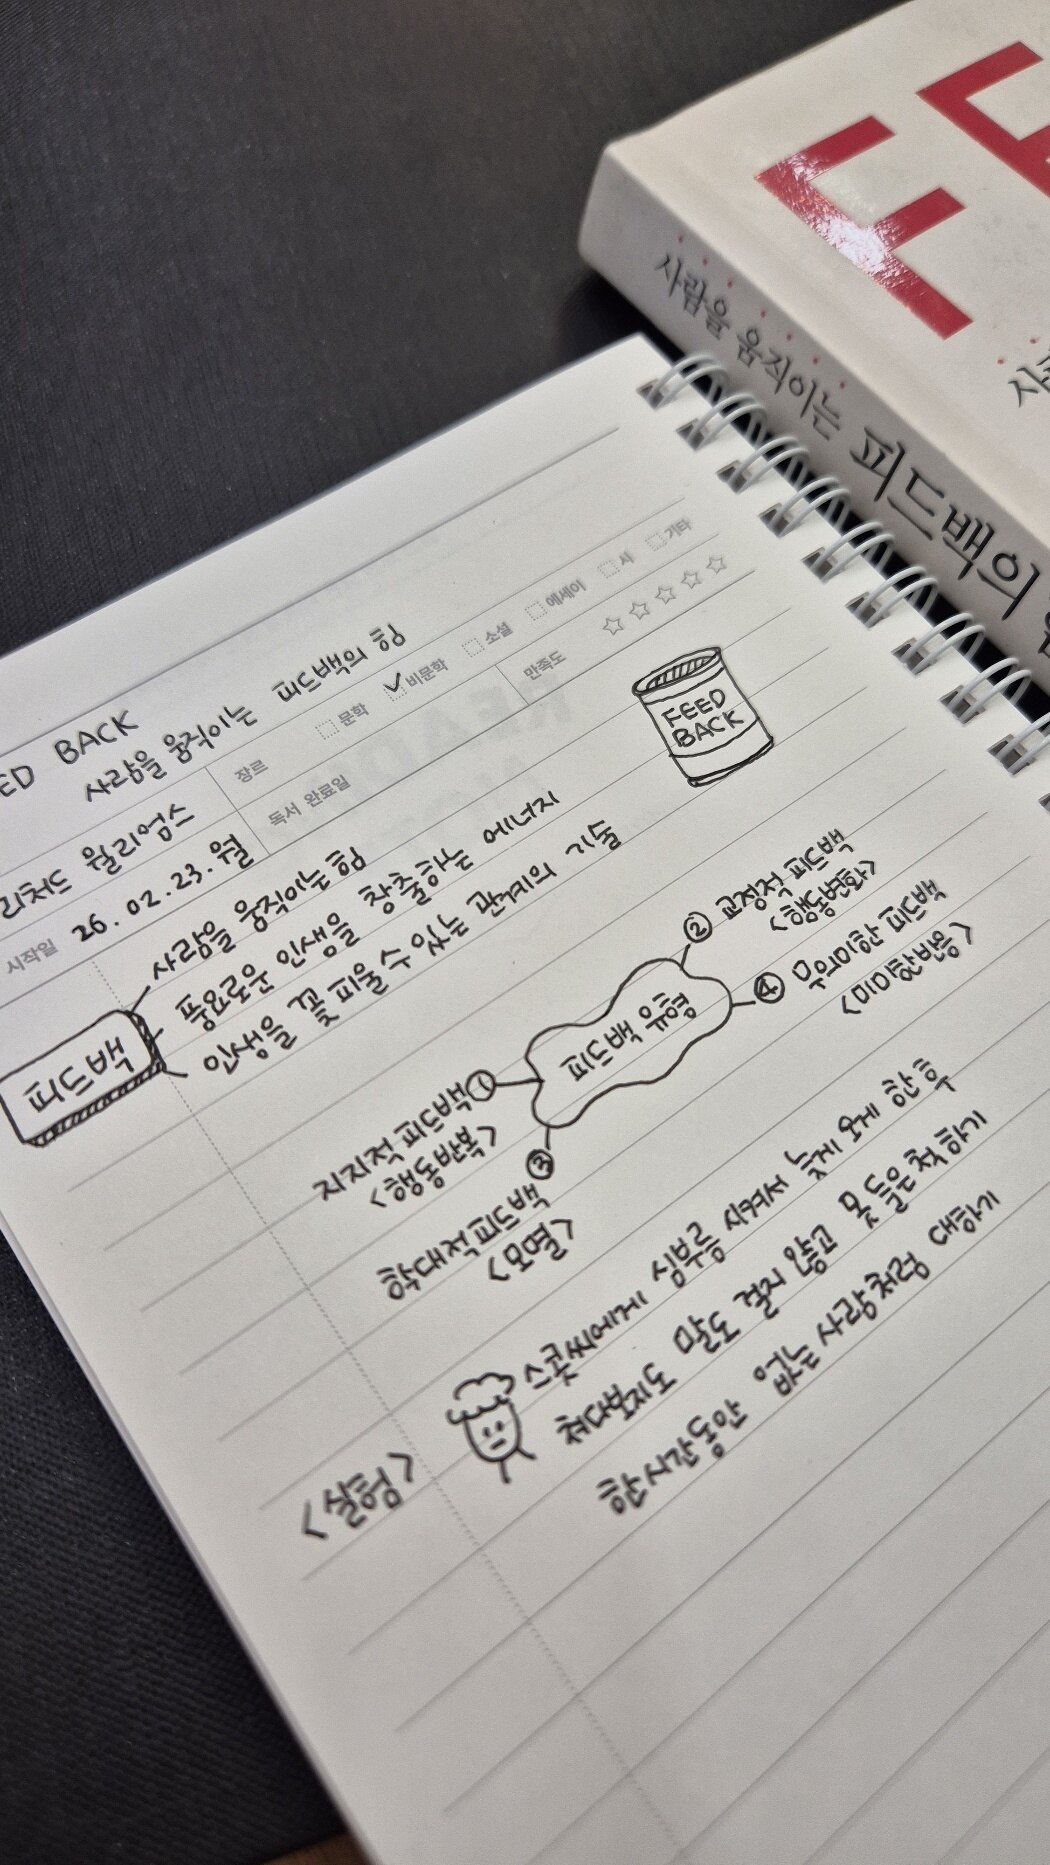 사람을 움직이는 피드백의
ED BACK
사람을 움직이는 피드백의 힘
리처드 윌리엄스
장르 문학 비문학 소설 에세이 시 기타
시작일 26.02.23.월
독서 완료일
만족도
FEED
BACK
피드백
사람을 움직이는 힘
풍요로운 인생을 창출하는 에너지
인생을 꽃 피울 수 있는 관계의 기술
피드백 유형
① 지지적 피드백
<행동반복>
② 교정적 피드백
<행동변화>
③ 학대적 피드백
<모멸>
④ 무의미한 피드백
<미미한반응>
<실험>
스콧씨에게 심부름 시켜서 늦게 오게 한 후
쳐다보지도 말도 걸지 않고 못 들은 척 하기
한시간동안 없는 사람처럼 대하기